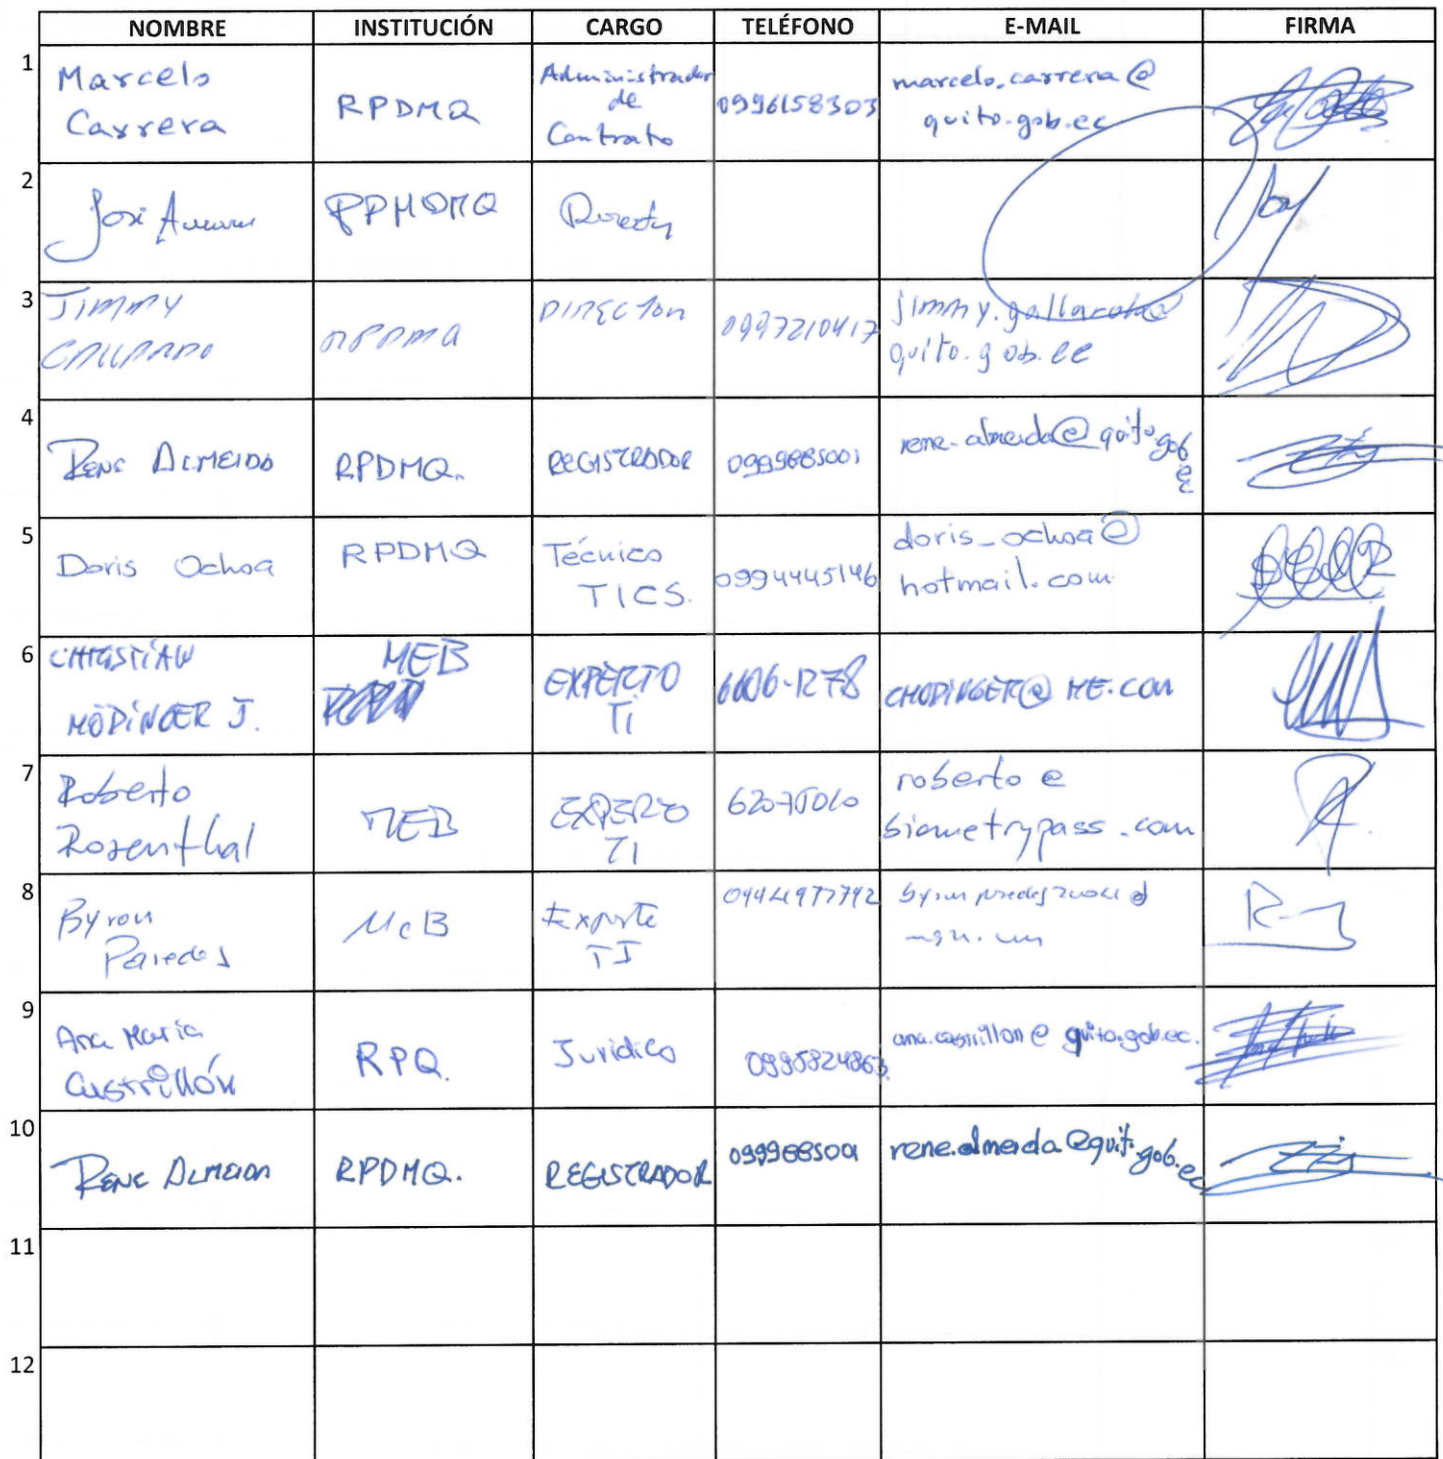 NOMBRE INSTITUCIÓN CARGO TELÉFONO E-MAIL FIRMA
1
Marcelo
Carrera
RPDMQ
Administrador
de
Contrato
0996158303
marcelo.carrera@
quito.gob.ec
2
José
3
JIMMY
0997210417
jimmy.gallardo@
quito.gob.ec
4
RENE ALMEIDA
RPDMQ.
REGISTRADOR
rene.almeida@quito.gob
ec
5
Doris Ochoa
RPDMQ
Técnico
TICS.
0994445146
doris_ochoa@
hotmail.com
6
CHRISTIAN
MÖDINGER J.
MEB
EXPERTO
TI
6606-1278
CMODINGER@ME.COM
7
Roberto
Rosenthal
MEB
EXPERTO
TI
roberto@
biometrypass.com
8
Byron
Paredes
MeB
TI
9
Ana María
Castrillón
RPQ.
Jurídico
0995824863
ana.castrillon@quito.gob.ec.
10
RENE ALMEIDA
RPDMQ.
REGISTRADOR
rene.almeida@quito.gob.ec
11
12